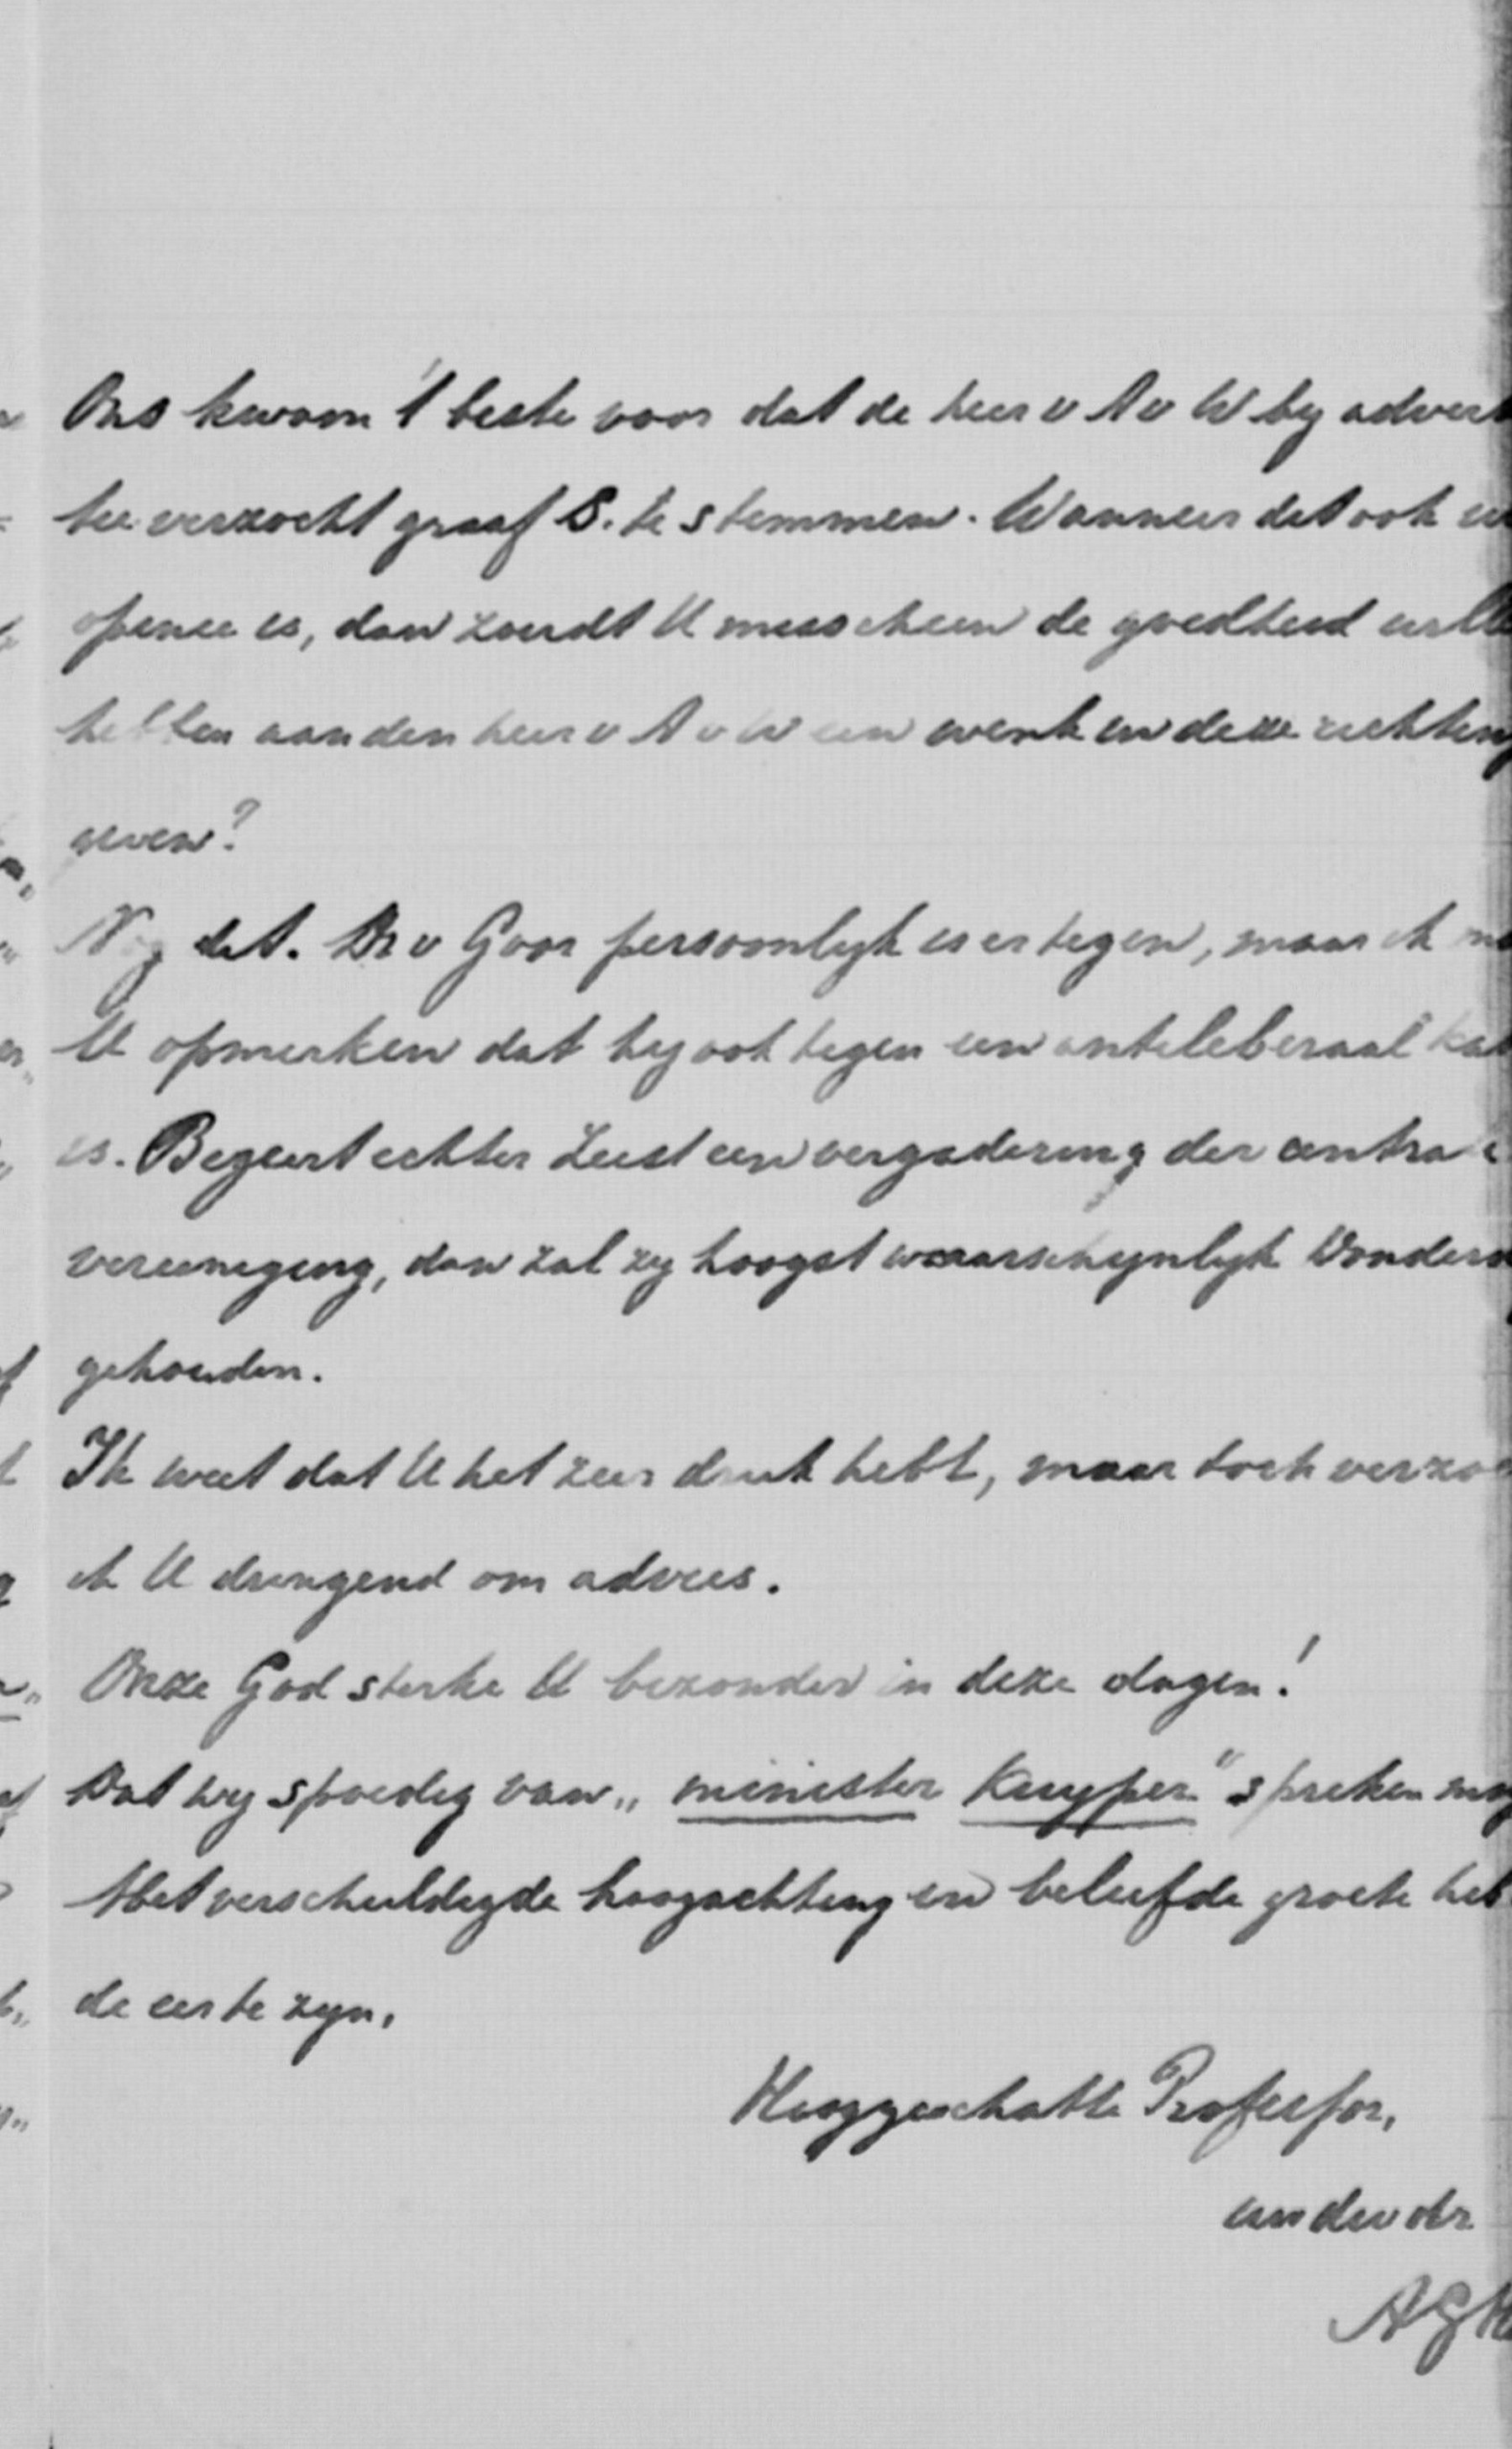 Ons kwam 't beste voor dat de heer v A v W by advert
tie verzocht graaf S. te stemmen. Wanneer dat ook uw
opinie is, dan zoudt U misschien de goedheid wille
hebben aan den heer v A v W een wenk in deze richting
geven?
Nog dit. Dr v Goor persoonlyk is er tegen, maar ik m
U opmerken dat hy ook tegen een antiliberaal ka
is. Begeert echter Zeist een vergadering der centra
vereeniging, dan zal zy hoogst waarschynlyk Donder
gehouden.
Ik weet dat U het zeer druk hebt, maar toch verzo
ik U dringend om advies.
Onze God sterke U bezonder in deze dagen!
Dat wy spoedig van „minister Kuyper" spreken mo
Met verschuldigde hoogachting en beleefde groete heb
de eer te zyn,
Hooggeschatte Professor,
uw dw dr
AG